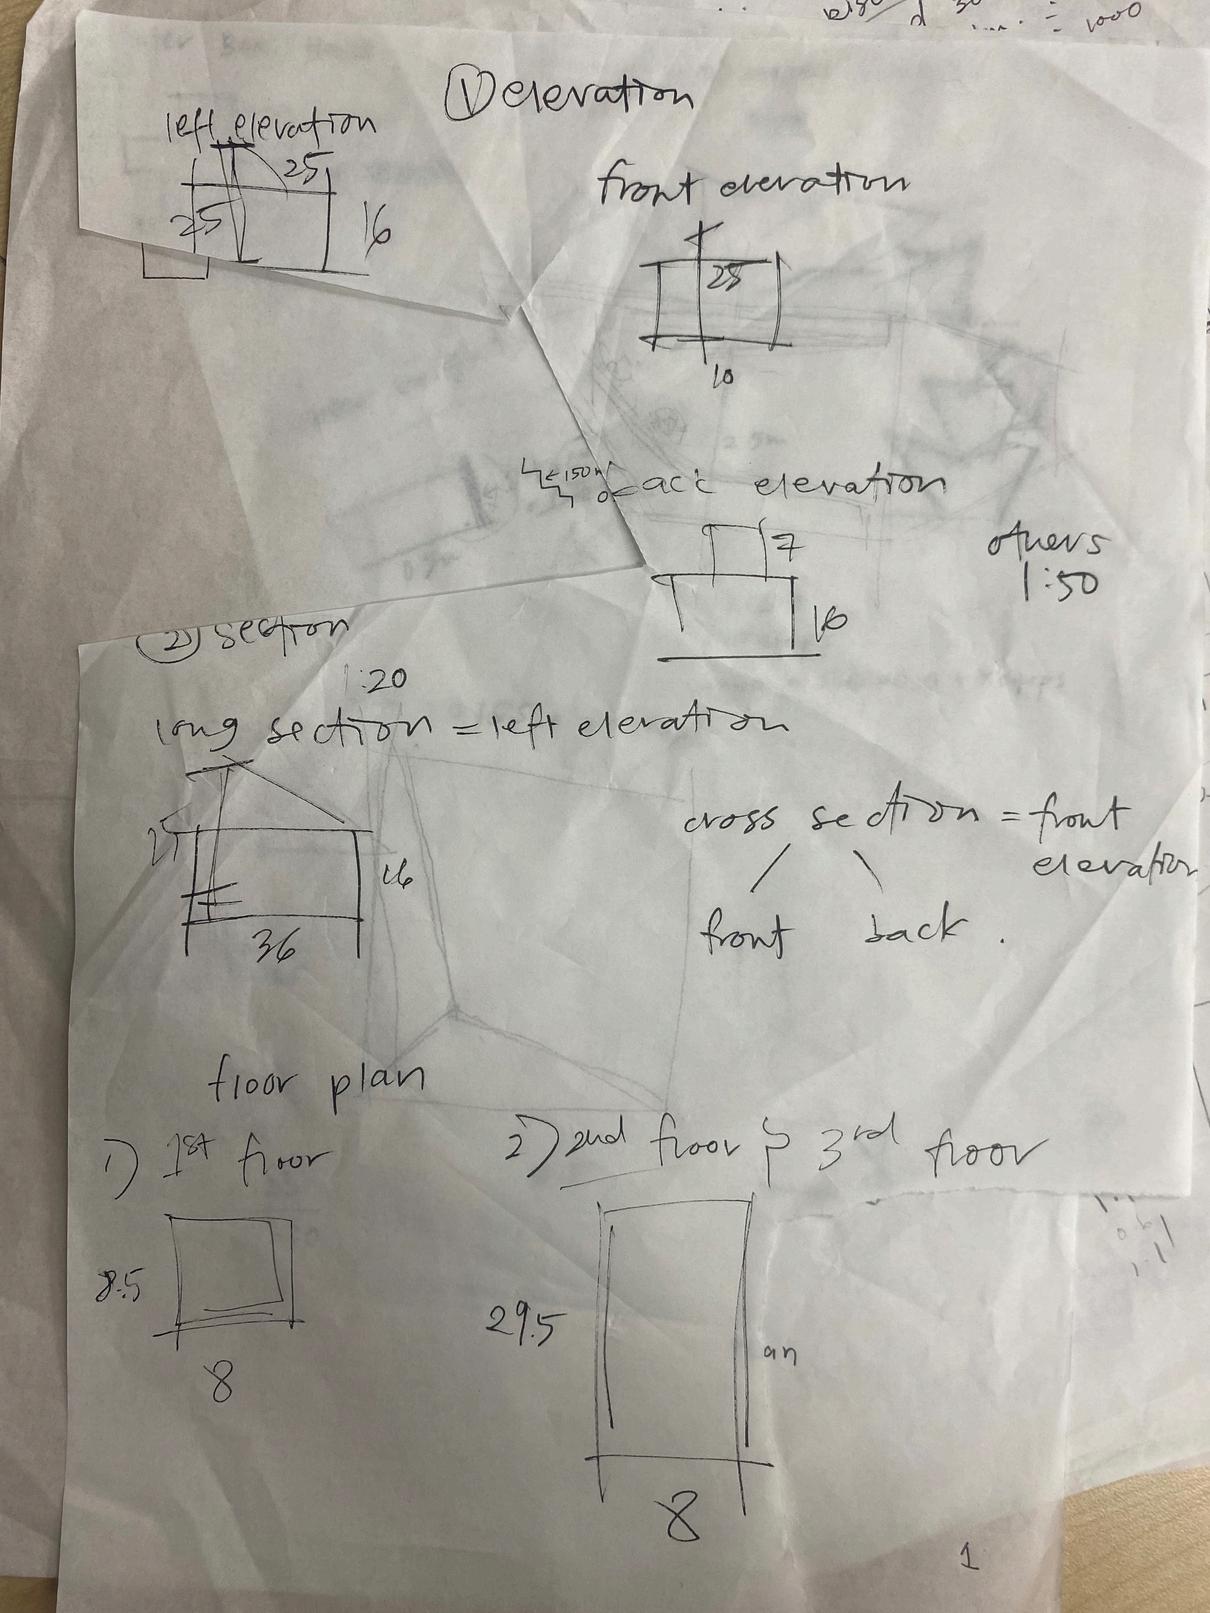 1000
① elevation
left elevation
25
25
16
front elevation
25
10
elevation
7
16
others
1:50
② section
1:20
long section = left elevation
25
16
36
cross section = front
elevation
front back.
floor plan
1) 1st floor
2) 2nd floor & 3rd floor
8.5
8
29.5
an
8
1